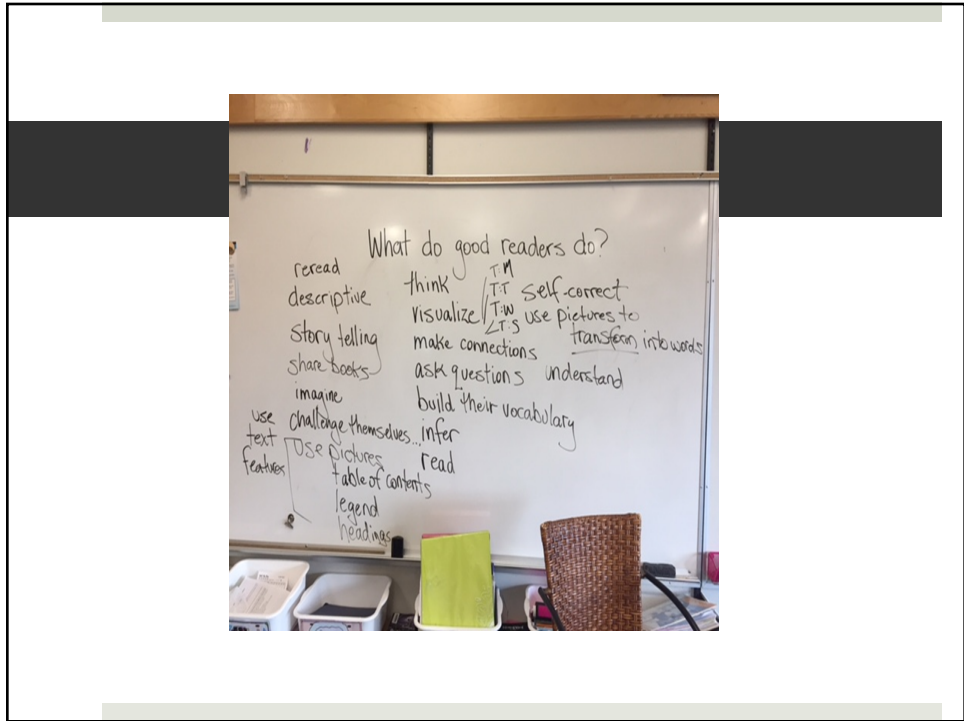 What do good readers do?
reread
descriptive
story telling
share books
imagine
challenge themselves...
use
text
features
use pictures
table of contents
legend
headings
think
visualize
make connections
ask questions
build their vocabulary
infer
read
T:M
T:T
T:W
T:S
self-correct
use pictures to
transform into words
understand